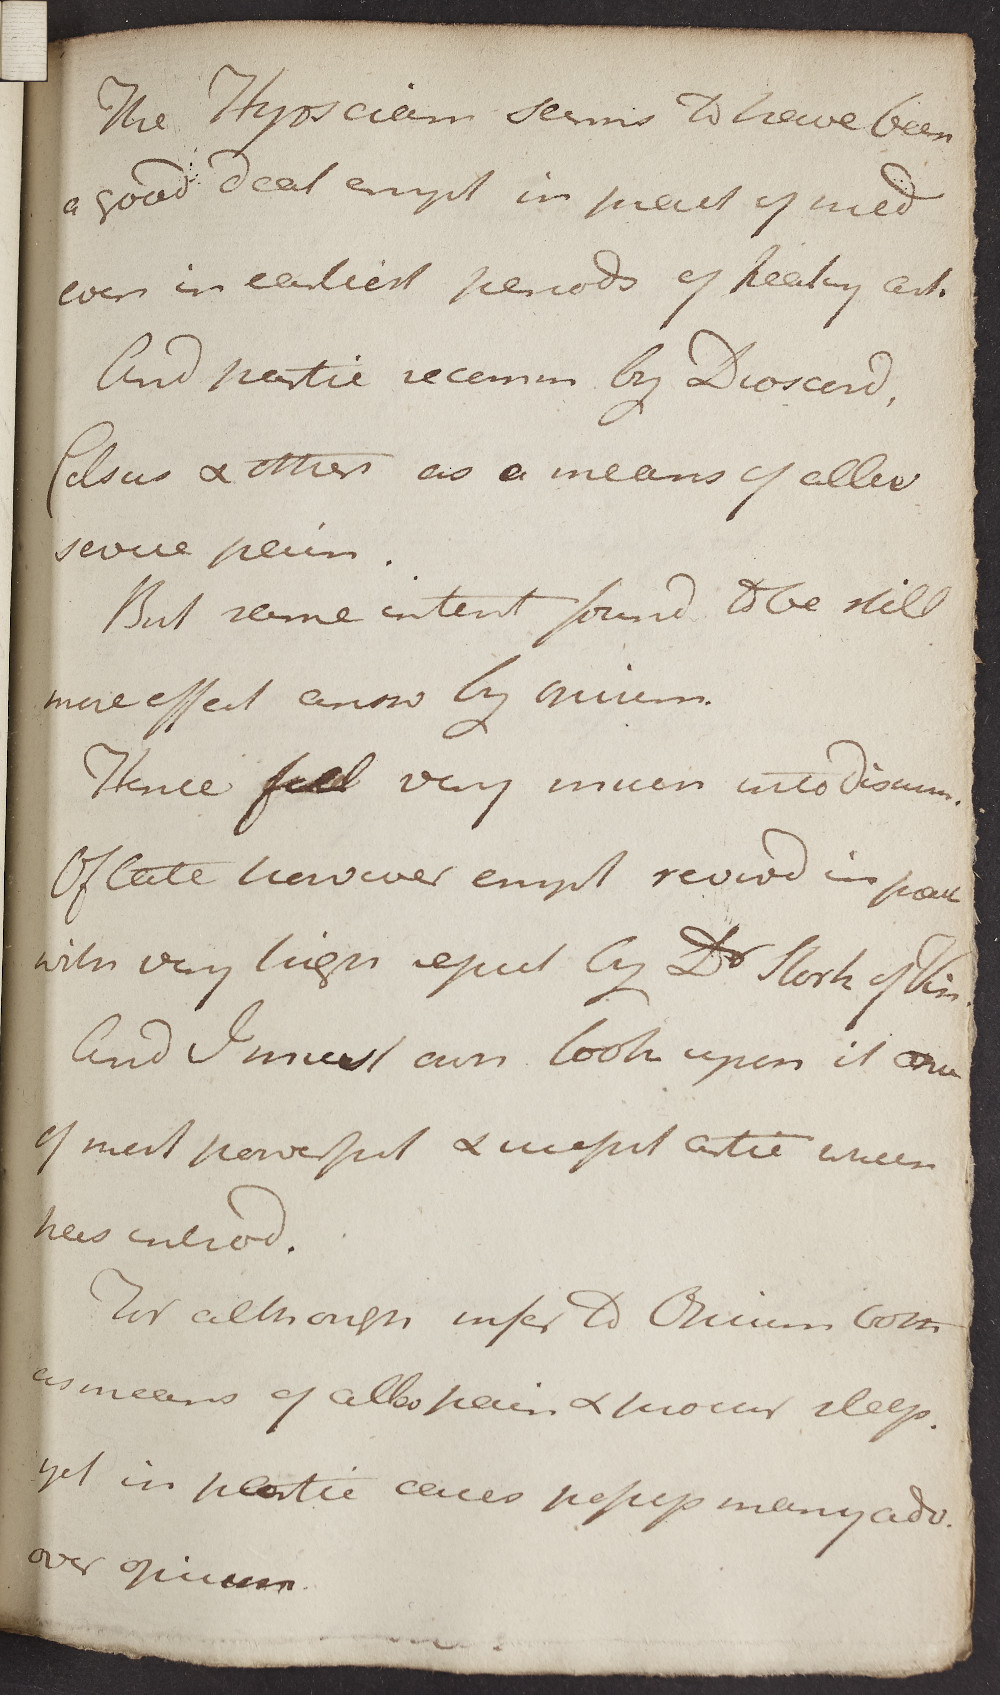 The Hyosciam seems to have been
a good deal empt in pract of med
even in earliest periods of healing art.
And partic recomm by Dioscord,
Celsus & others as a means of allev
severe pain.
But same intent found to be still
more effect answ by opium.
Hence fell very much into disuse.
Of late however empt revivd in
with very high reput by Dr Stork of Vin.
And I must own look upon it one
of most powerful & usefull artic which
has introd.
For although infer to Opium both
as means of allev pain & procur sleep.
yet in partic cases possess many adv.
over opium.